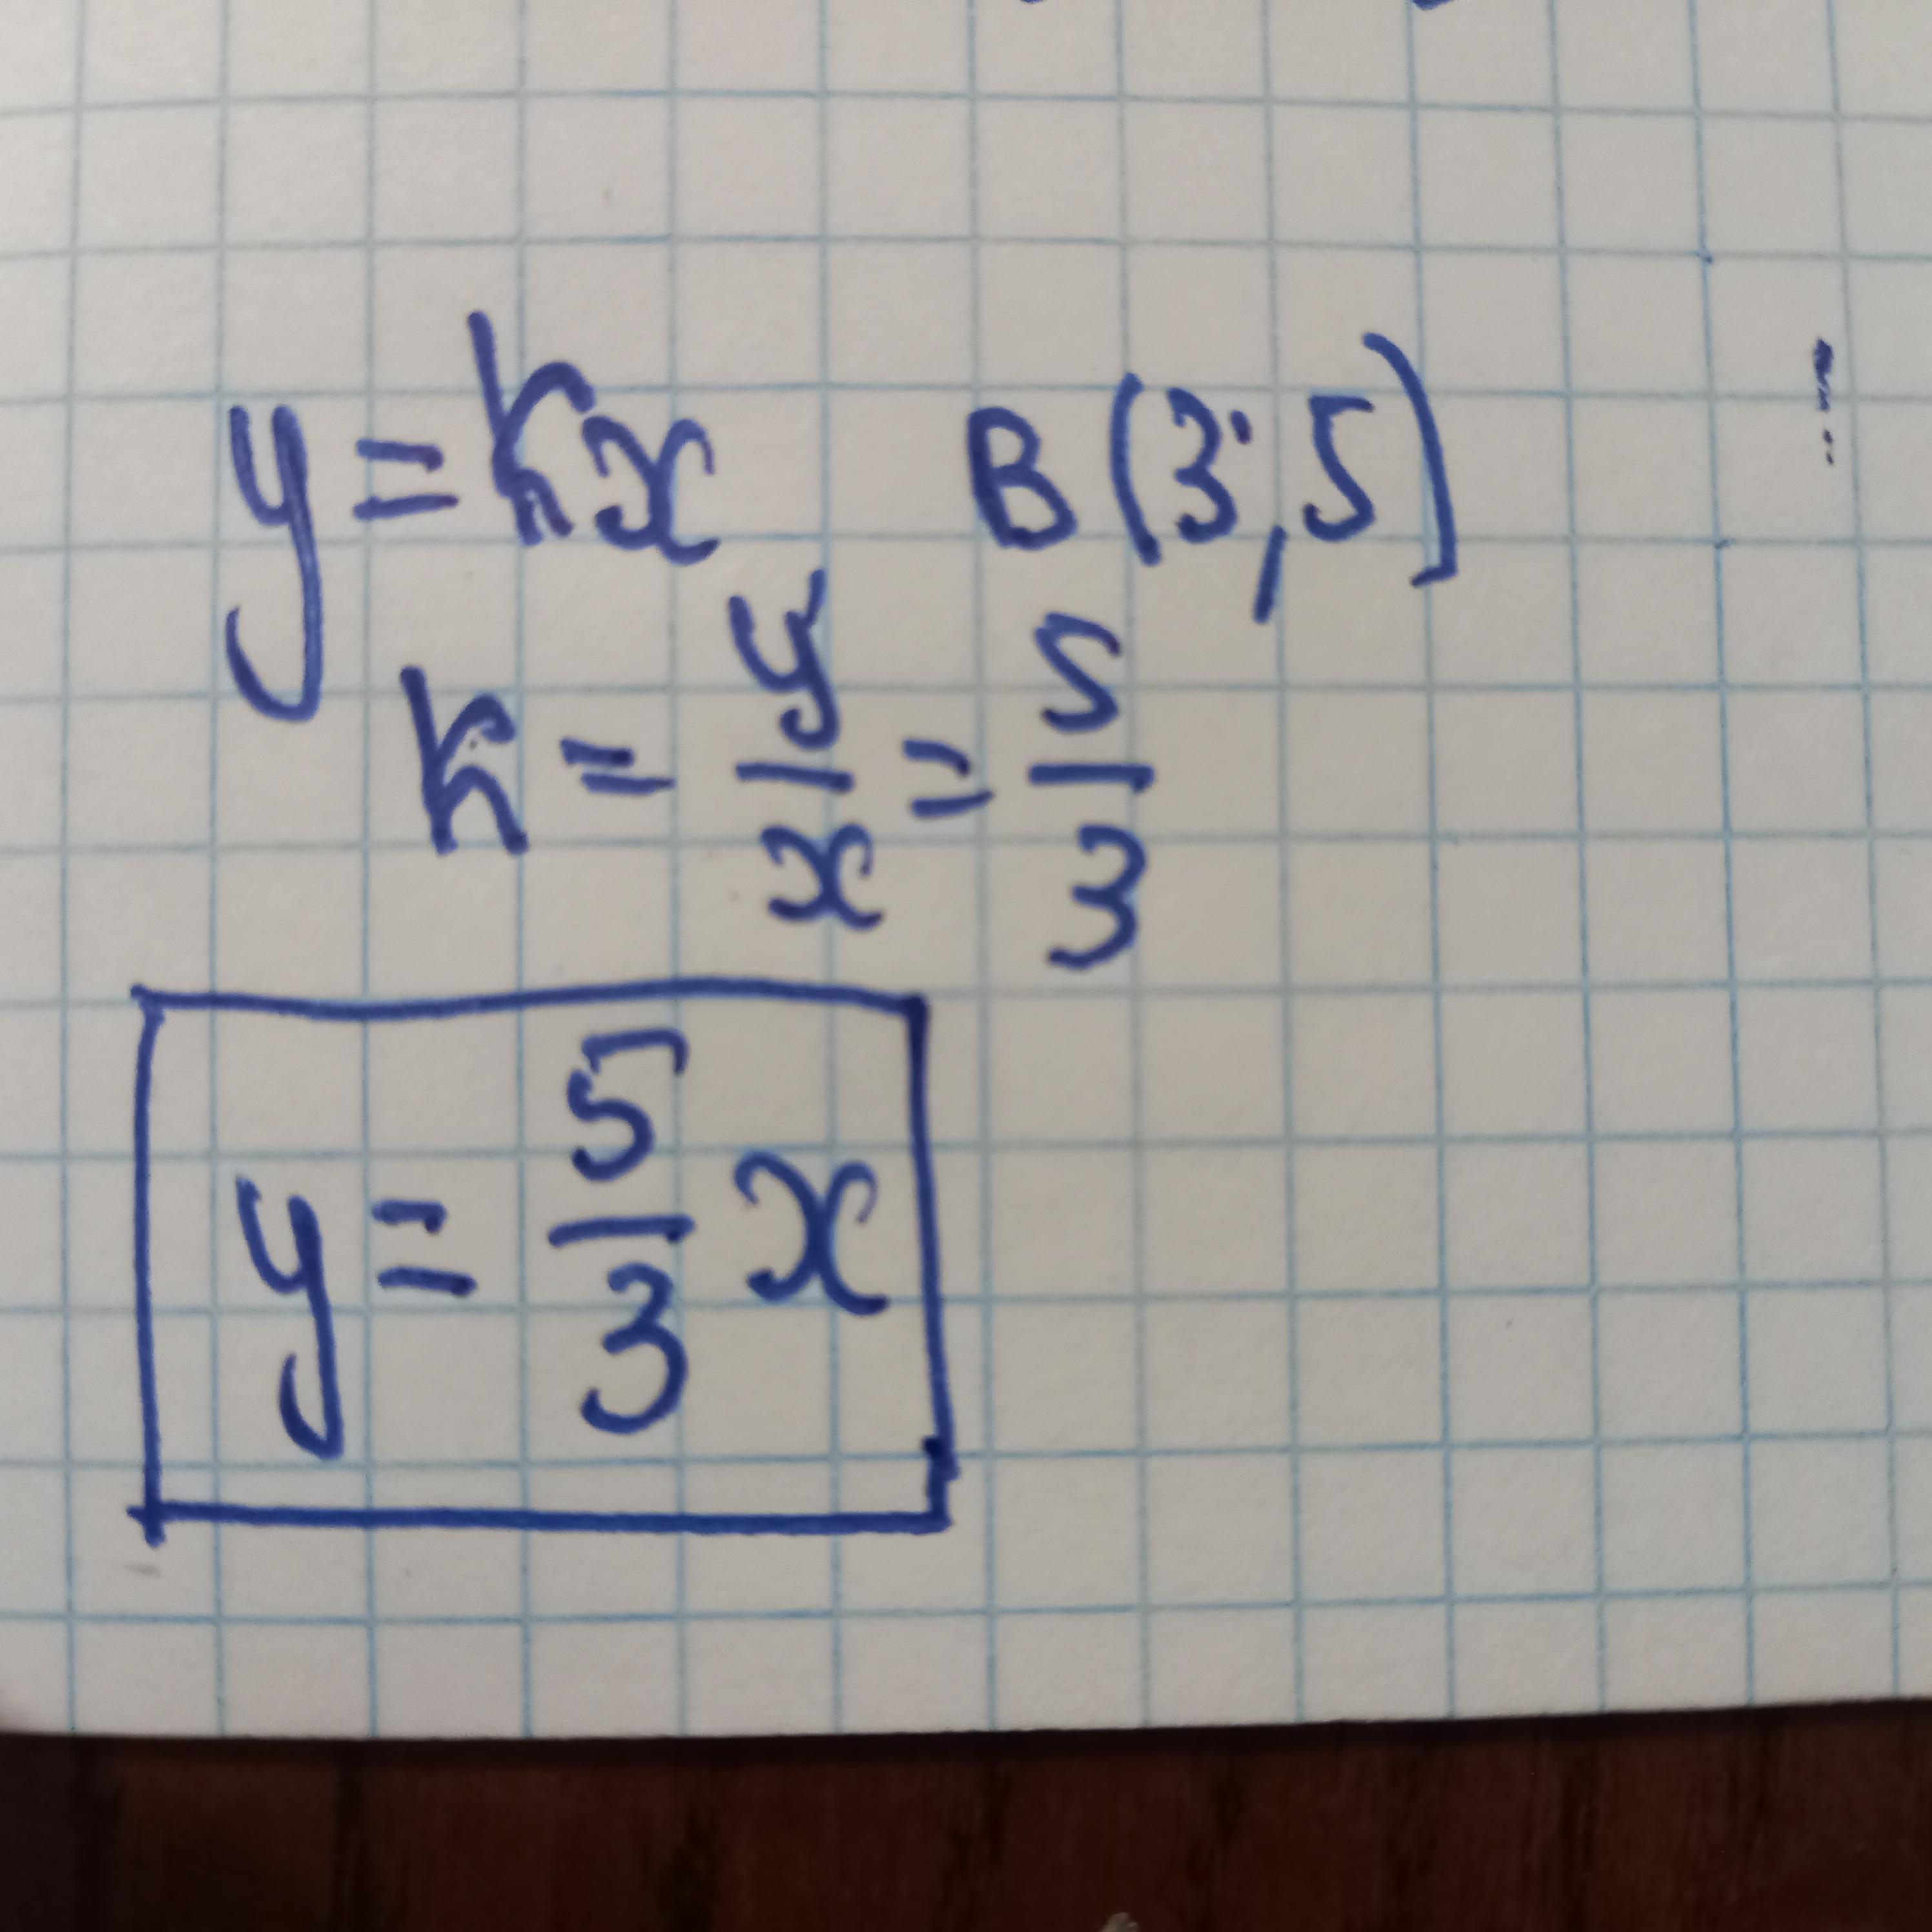 y = kx B(3;5)
k = y/x = 5/3
y = 5/3 x